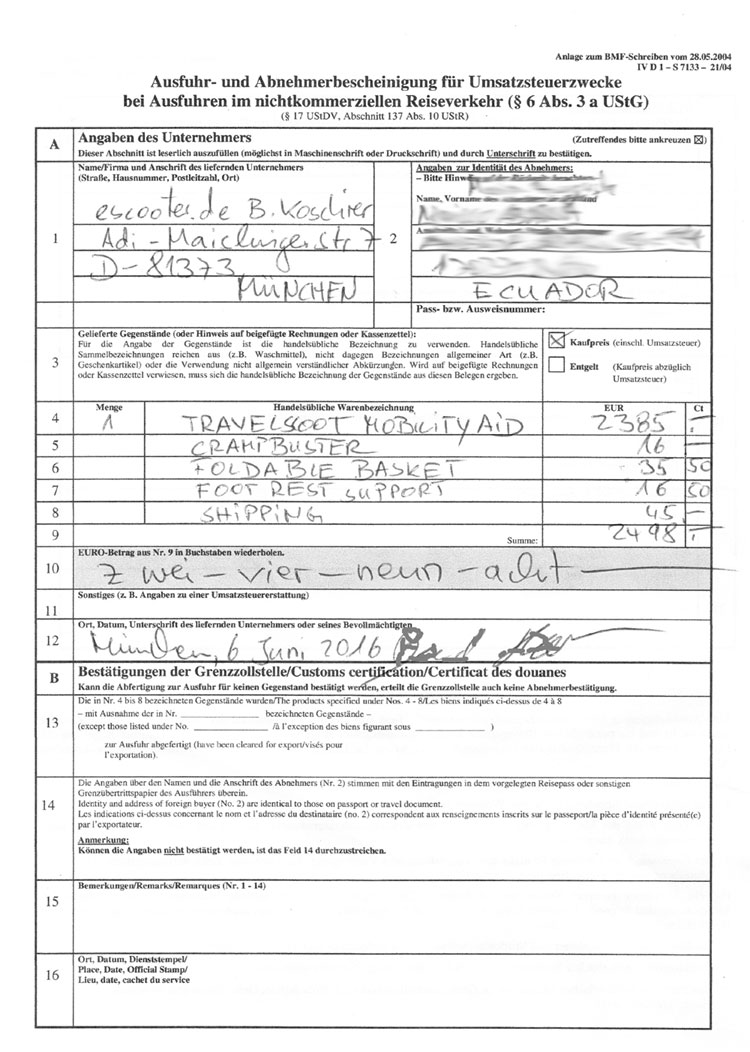 Anlage zum BMF-Schreiben vom 28.05.2004
IV D 1 – S 7133 – 21/04
Ausfuhr- und Abnehmerbescheinigung für Umsatzsteuerzwecke
bei Ausfuhren im nichtkommerziellen Reiseverkehr (§ 6 Abs. 3 a UStG)
(§ 17 UStDV, Abschnitt 137 Abs. 10 UStR)
A Angaben des Unternehmers (Zutreffendes bitte ankreuzen ☒)
Dieser Abschnitt ist leserlich auszufüllen (möglichst in Maschinenschrift oder Druckschrift) und durch Unterschrift zu bestätigen.
1
Name/Firma und Anschrift des liefernden Unternehmers
(Straße, Hausnummer, Postleitzahl, Ort)
escooter.de B. Koschier
Adi-Maislinger Str 7
D-81373
MÜNCHEN
2
Angaben zur Identität des Abnehmers:
– Bitte
Name, Vorname
ECUADOR
Pass- bzw. Ausweisnummer:
3
Gelieferte Gegenstände (oder Hinweis auf beigefügte Rechnungen oder Kassenzettel):
Für die Angabe der Gegenstände ist die handelsübliche Bezeichnung zu verwenden. Handelsübliche
Sammelbezeichnungen reichen aus (z.B. Waschmittel), nicht dagegen Bezeichnungen allgemeiner Art (z.B.
Geschenkartikel) oder die Verwendung nicht allgemein verständlicher Abkürzungen. Wird auf beigefügte Rechnungen
oder Kassenzettel verwiesen, muss sich die handelsübliche Bezeichnung der Gegenstände aus diesen Belegen ergeben.
☒ Kaufpreis (einschl. Umsatzsteuer)
☐ Entgelt (Kaufpreis abzüglich
Umsatzsteuer)
Menge Handelsübliche Warenbezeichnung EUR Ct
4 1 TRAVELSCOOT MOBILITY AID 2385 –
5 CRAMPBUSTER 16 –
6 FOLDABLE BASKET 35 50
7 FOOT REST SUPPORT 16 50
8 SHIPPING 45 –
9 Summe: 2498 –
EURO-Betrag aus Nr. 9 in Buchstaben wiederholen.
10 zwei – vier – neun – acht –
Sonstiges (z. B. Angaben zu einer Umsatzsteuererstattung)
11
Ort, Datum, Unterschrift des liefernden Unternehmers oder seines Bevollmächtigten
12 München, 6 Juni 2016
B Bestätigungen der Grenzzollstelle/Customs certification/Certificat des douanes
Kann die Abfertigung zur Ausfuhr für keinen Gegenstand bestätigt werden, erteilt die Grenzzollstelle auch keine Abnehmerbestätigung.
13
Die in Nr. 4 bis 8 bezeichneten Gegenstände wurden/The products specified under Nos. 4 - 8/Les biens indiqués ci-dessus de 4 à 8
– mit Ausnahme der in Nr. ________ bezeichneten Gegenstände –
(except those listed under No. ________ /à l'exception des biens figurant sous ________ )
zur Ausfuhr abgefertigt (have been cleared for export/visés pour
l'exportation).
14
Die Angaben über den Namen und die Anschrift des Abnehmers (Nr. 2) stimmen mit den Eintragungen in dem vorgelegten Reisepass oder sonstigen
Grenzübertrittspapier des Ausführers überein.
Identity and address of foreign buyer (No. 2) are identical to those on passport or travel document.
Les indications ci-dessus concernant le nom et l'adresse du destinataire (no. 2) correspondent aux renseignements inscrits sur le passeport/la pièce d'identité présenté(e)
par l'exportateur.
Anmerkung:
Können die Angaben nicht bestätigt werden, ist das Feld 14 durchzustreichen.
Bemerkungen/Remarks/Remarques (Nr. 1 - 14)
15
16
Ort, Datum, Dienststempel/
Place, Date, Official Stamp/
Lieu, date, cachet du service